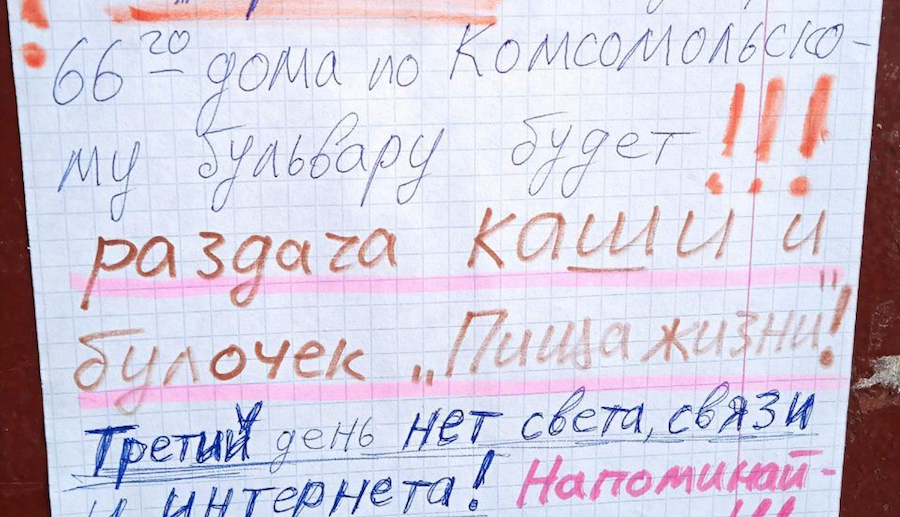 66го дома по Комсомольско-
му бульвару будет!!!
раздача каши и
булочек „Пища жизни"!
Третий день нет света, связи
и интернета! Напоминай-
!!!